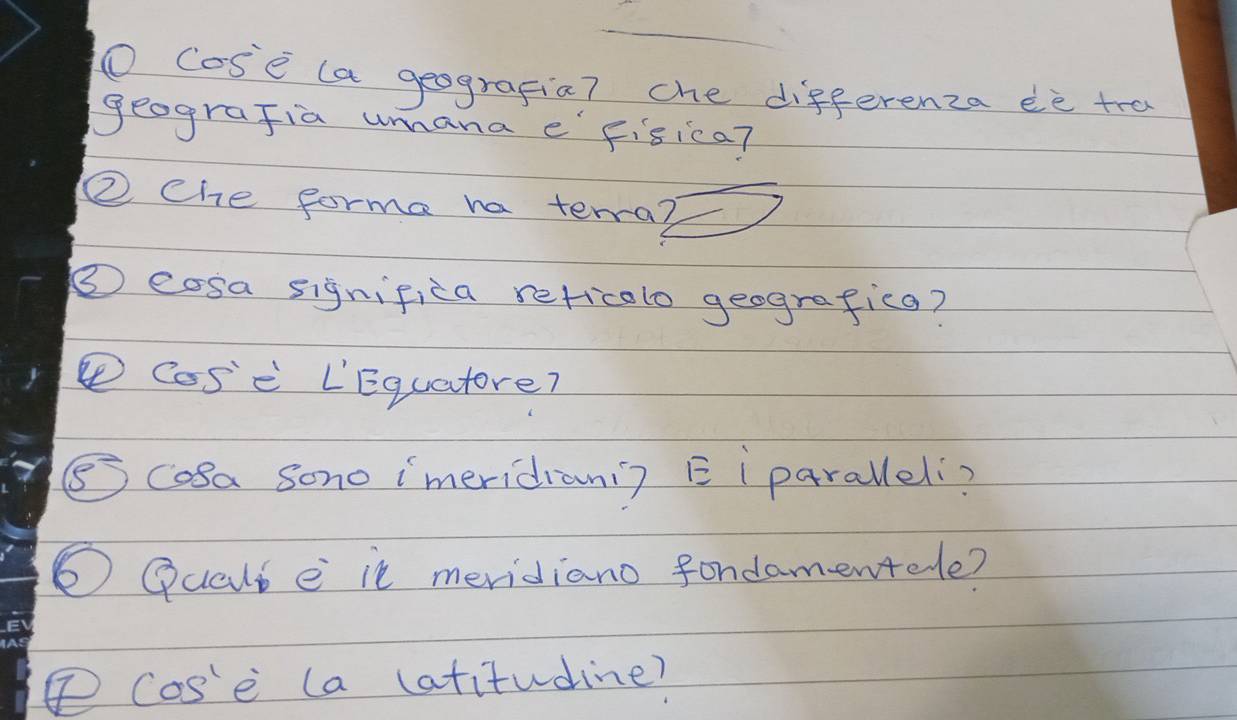 ① Cos'è la geografia? Che differenza c'è tra
geografia umana e fisica?
② Che forma ha terra?
③ Cosa significa reticolo geografico?
④ Cos'è L'Equatore?
⑤ Cosa sono i meridiani? E i paralleli?
⑥ Quali è il meridiano fondamentale?
⑦ Cos'è la latitudine?
LEV